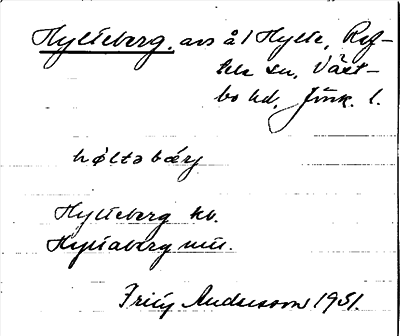 Hylteberg. avs å 1 Hylte, Ref-
tele sn, Väst-
bo hd, Jönk. l.
høltəbærj
Hylteberg kb.
Hyltaberg mus.
Fritz Andersson 1951.